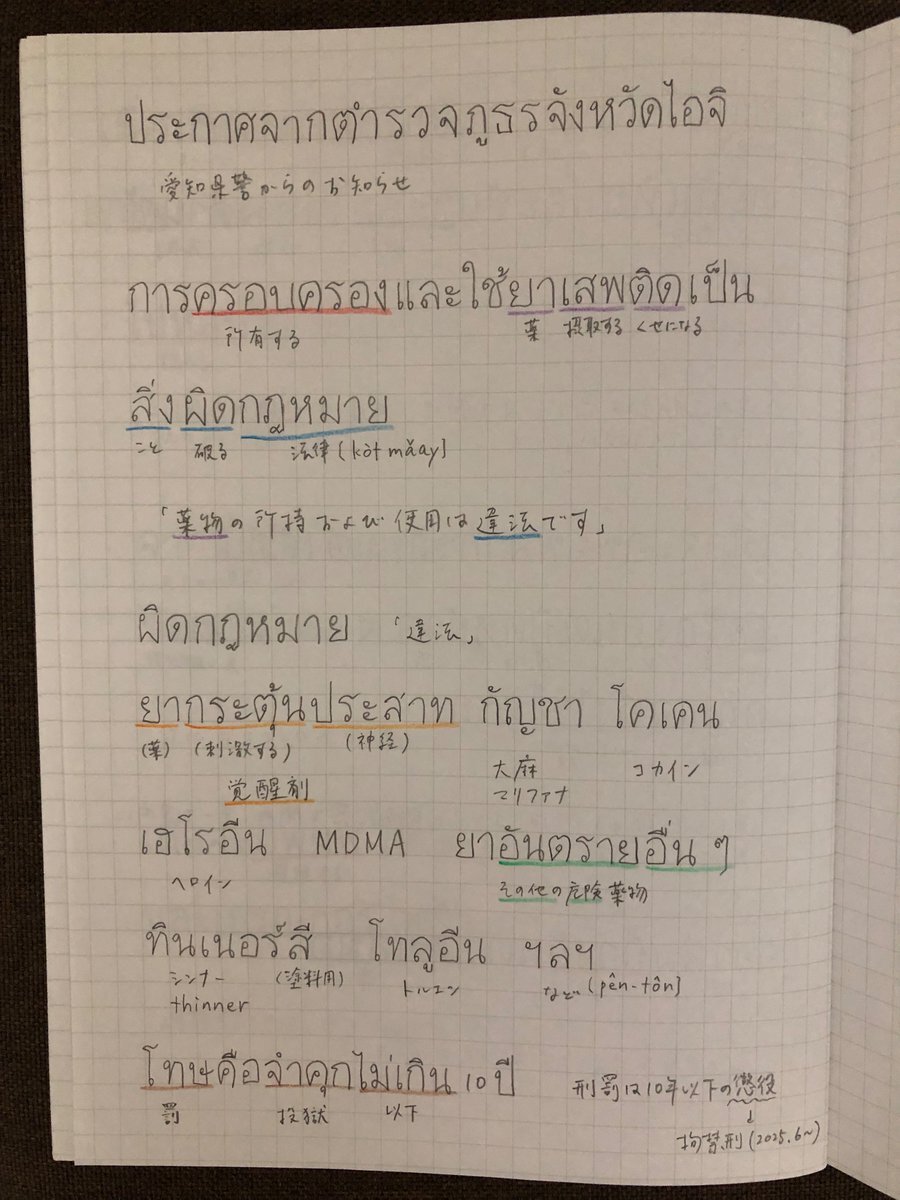 ประกาศจากตำรวจภูธรจังหวัดไอจิ
愛知県警からのお知らせ
การครอบครองและใช้ยาเสพติดเป็น
所有する 薬 摂取する くせになる
สิ่งผิดกฎหมาย
こと 破る 法律 [kòt mǎay]
「薬物の所持および使用は違法です」
ผิดกฎหมาย 「違法」
ยากระตุ้นประสาท กัญชา โคเคน
(薬) (刺激する) (神経)
大麻 コカイン
覚醒剤 マリファナ
เฮโรอีน MDMA ยาอันตรายอื่น ๆ
ヘロイン その他の危険薬物
ทินเนอร์สี โทลูอีน ฯลฯ
シンナー (塗料用) トルエン など [pên-tôn]
thinner
โทษคือจำคุกไม่เกิน 10 ปี 刑罰は10年以下の懲役
罰 投獄 以下
↓
拘禁刑 (2025.6~)